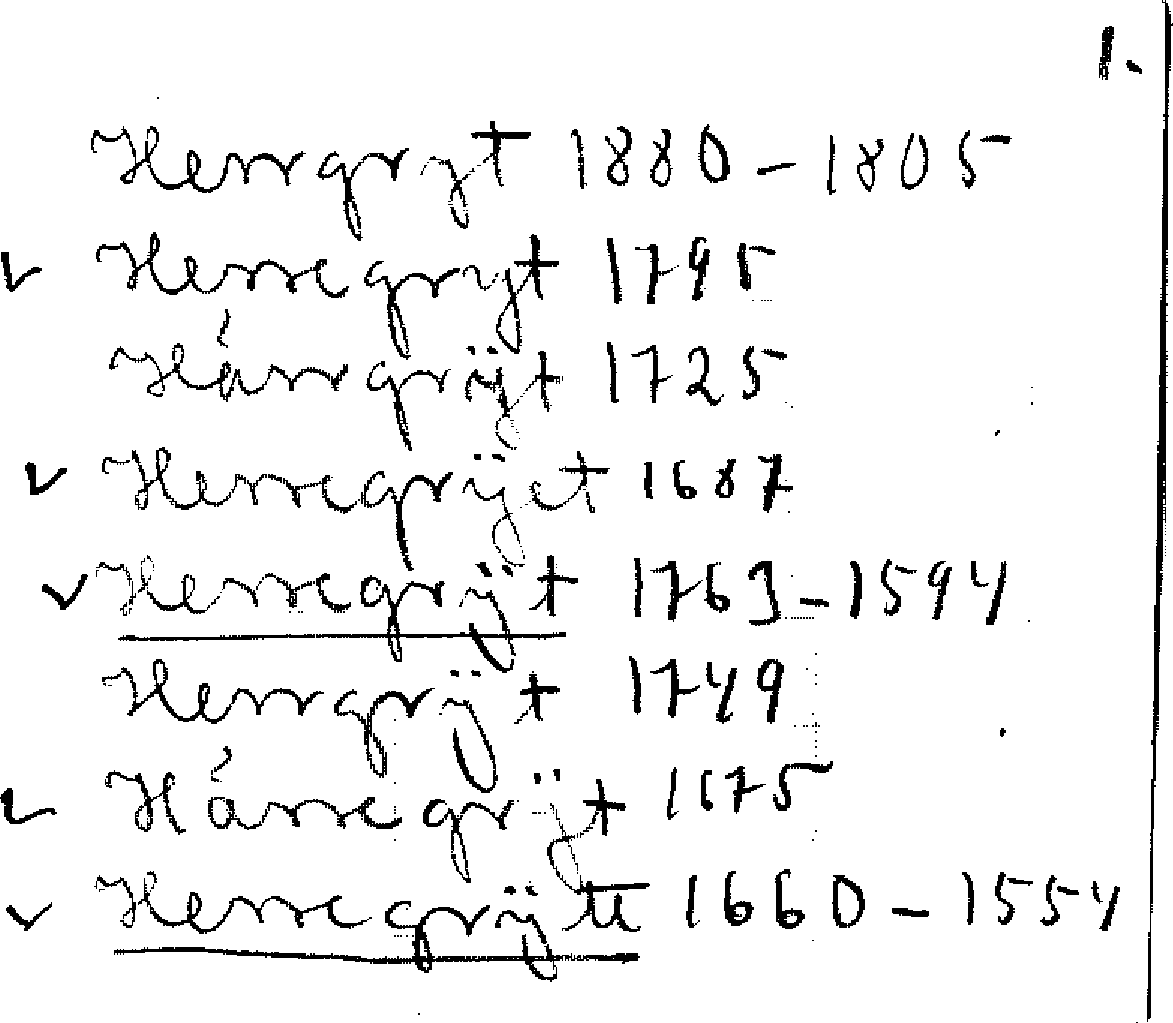 1.
Herrgryt 1880 – 1805
✓ Herregryt 1795
Hárrgrÿt 1725
✓ Herregrÿet 1687
✓ Herregrÿt 1763 – 1594
Herrgrÿt 1749
✓ Hárregrÿt 1675
✓ Herregrÿtt 1660 – 1554